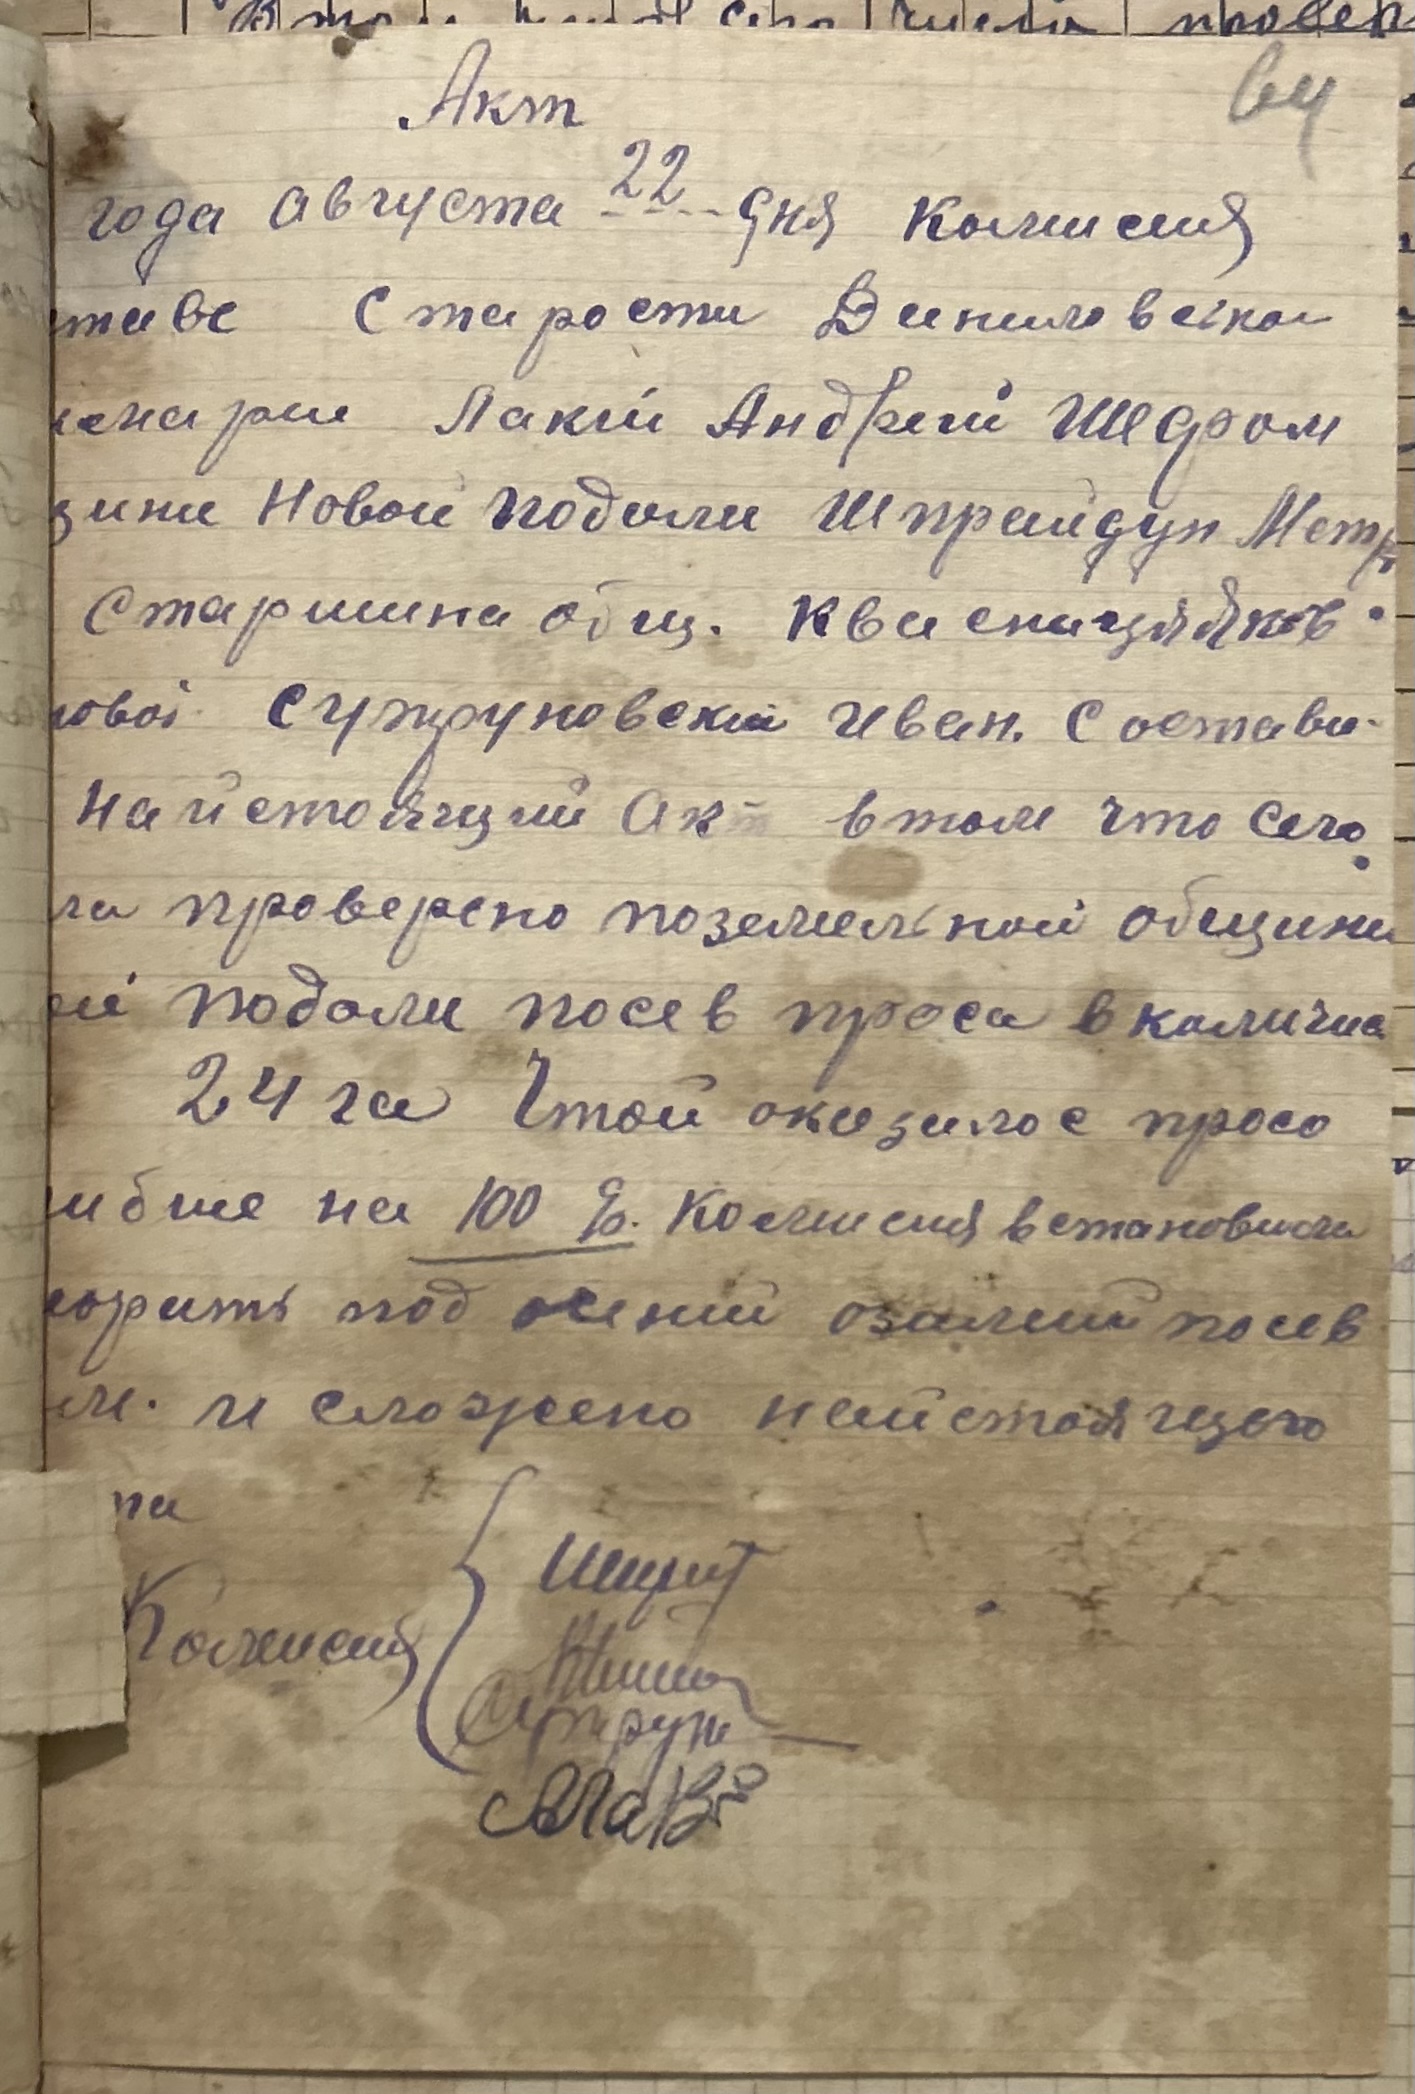 64
Акт
года августа 22 дня комисия
таве Старости Вениловской
Лакiй Андрей Шедром
Новой Подоли Шпрайдун Метр
Старшина общ. Квисницяяков
новоi Супруновский Иван. Состави-
найстоящий Акт в том что сего
ла проверено поземельной общини
ей Подоли посев проса в количес
24 га Чтой оказилос просо
ибше на 100 %. Комисия встановила
под осений озимий посев
им. и сложено найстоящего
та
Комисия
Шпрай
Супрун